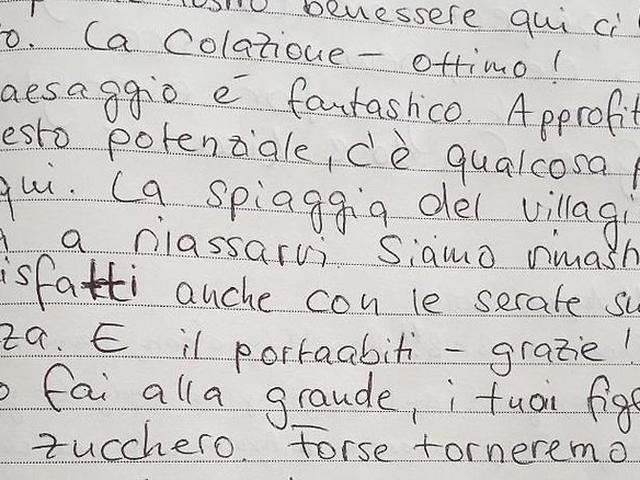 benessere qui ci
o. La Colazione - ottimo!
aesaggio é fantastico. Approfit
esto potenziale, c'è qualcosa p
qui. La spiaggia del villagi
a a rilassarvi. Siamo rimash
isfatti anche con le serate su
za. E il portaabiti - grazie!
o fai alla grande, i tuoi fig
zucchero. Forse torneremo